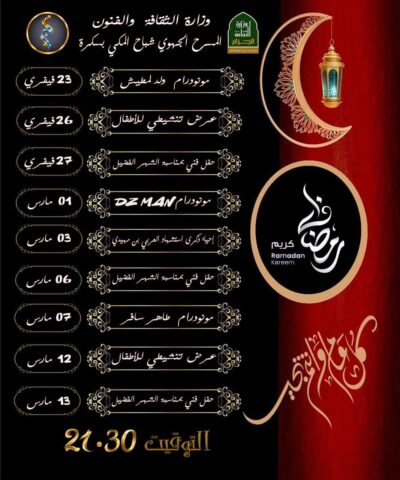 وزارة الثقافة والفنون
المسرح الجهوي شباح المكي بسكرة
مونودرام ولد لمطيش
23 فيفري
عرض تنشيطي للأطفال
26 فيفري
حفل فني بمناسبة الشهر الفضيل
27 فيفري
مونودرام DZ MAN
01 مارس
إحياء ذكرى استشهاد العربي بن مهيدي
03 مارس
حفل فني بمناسبة الشهر الفضيل
06 مارس
مونودرام طاهر سافر
07 مارس
عرض تنشيطي للأطفال
12 مارس
حفل فني بمناسبة الشهر الفضيل
13 مارس
التوقيت 21.30
رمضان
كريم
Ramadan
Kareem
كل عام وأنتم بخير